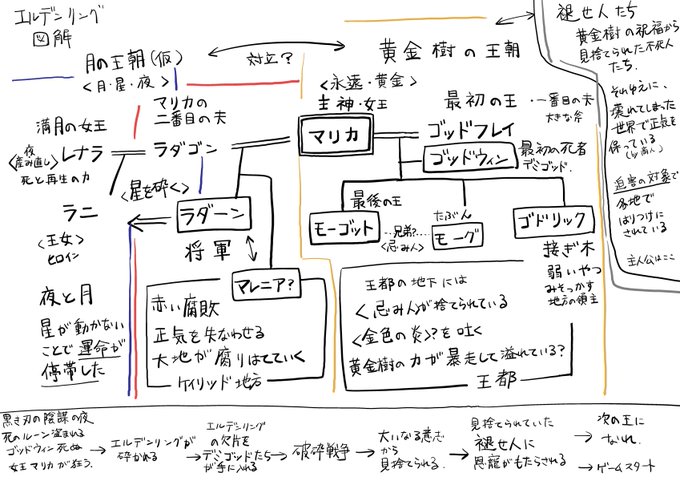 エルデンリング
図解
月の王朝(仮)
<月・星・夜>
対立?
黄金樹の王朝
褪せ人たち
黄金樹の祝福から
見捨てられた不死人
たち。
それゆえに、
壊れてしまった
世界で正気を
保っている
迫害の対象で
各地で
はりつけに
されている
主人公はここ
マリカの
二番目の夫
<永遠・黄金>
主神・女王
マリカ
最初の王
・一番目の夫
大きな斧
ゴッドフレイ
満月の女王
夜
<産み直し>
レナラ
死と再生の力
ラダゴン
ゴッドウィン
最初の死者
デミゴッド.
ラニ
<王女>
ヒロイン
<星を砕く>
ラダーン
将軍
最後の王
モーゴット
…兄弟?…
<忌み人>
たぶん
モーグ
ゴドリック
接ぎ木
弱いやつ
みそっかす
地方の領主
マレニア?
夜と月
星が動かない
ことで運命が
停滞した
赤い腐敗
正気を失なわせる
大地が腐りはてていく
ケイリッド地方
王都の地下には
<忌み人が捨てられている
<金色の炎>?を吐く
黄金樹の力が暴走して溢れている?
王都
黒き刃の陰謀の夜
死のルーン盗まれる
ゴッドウィン死ぬ
女王マリカが狂う.
→エルデンリングが
砕かれる
→エルデンリング
の欠片を
デミゴッドたち
が手に入れる
→破砕戦争
→大いなる意志
から
見捨てられる.
→見捨てられていた
褪せ人に
恩寵がもたらされる
→次の王に
なれ.
→ゲームスタート